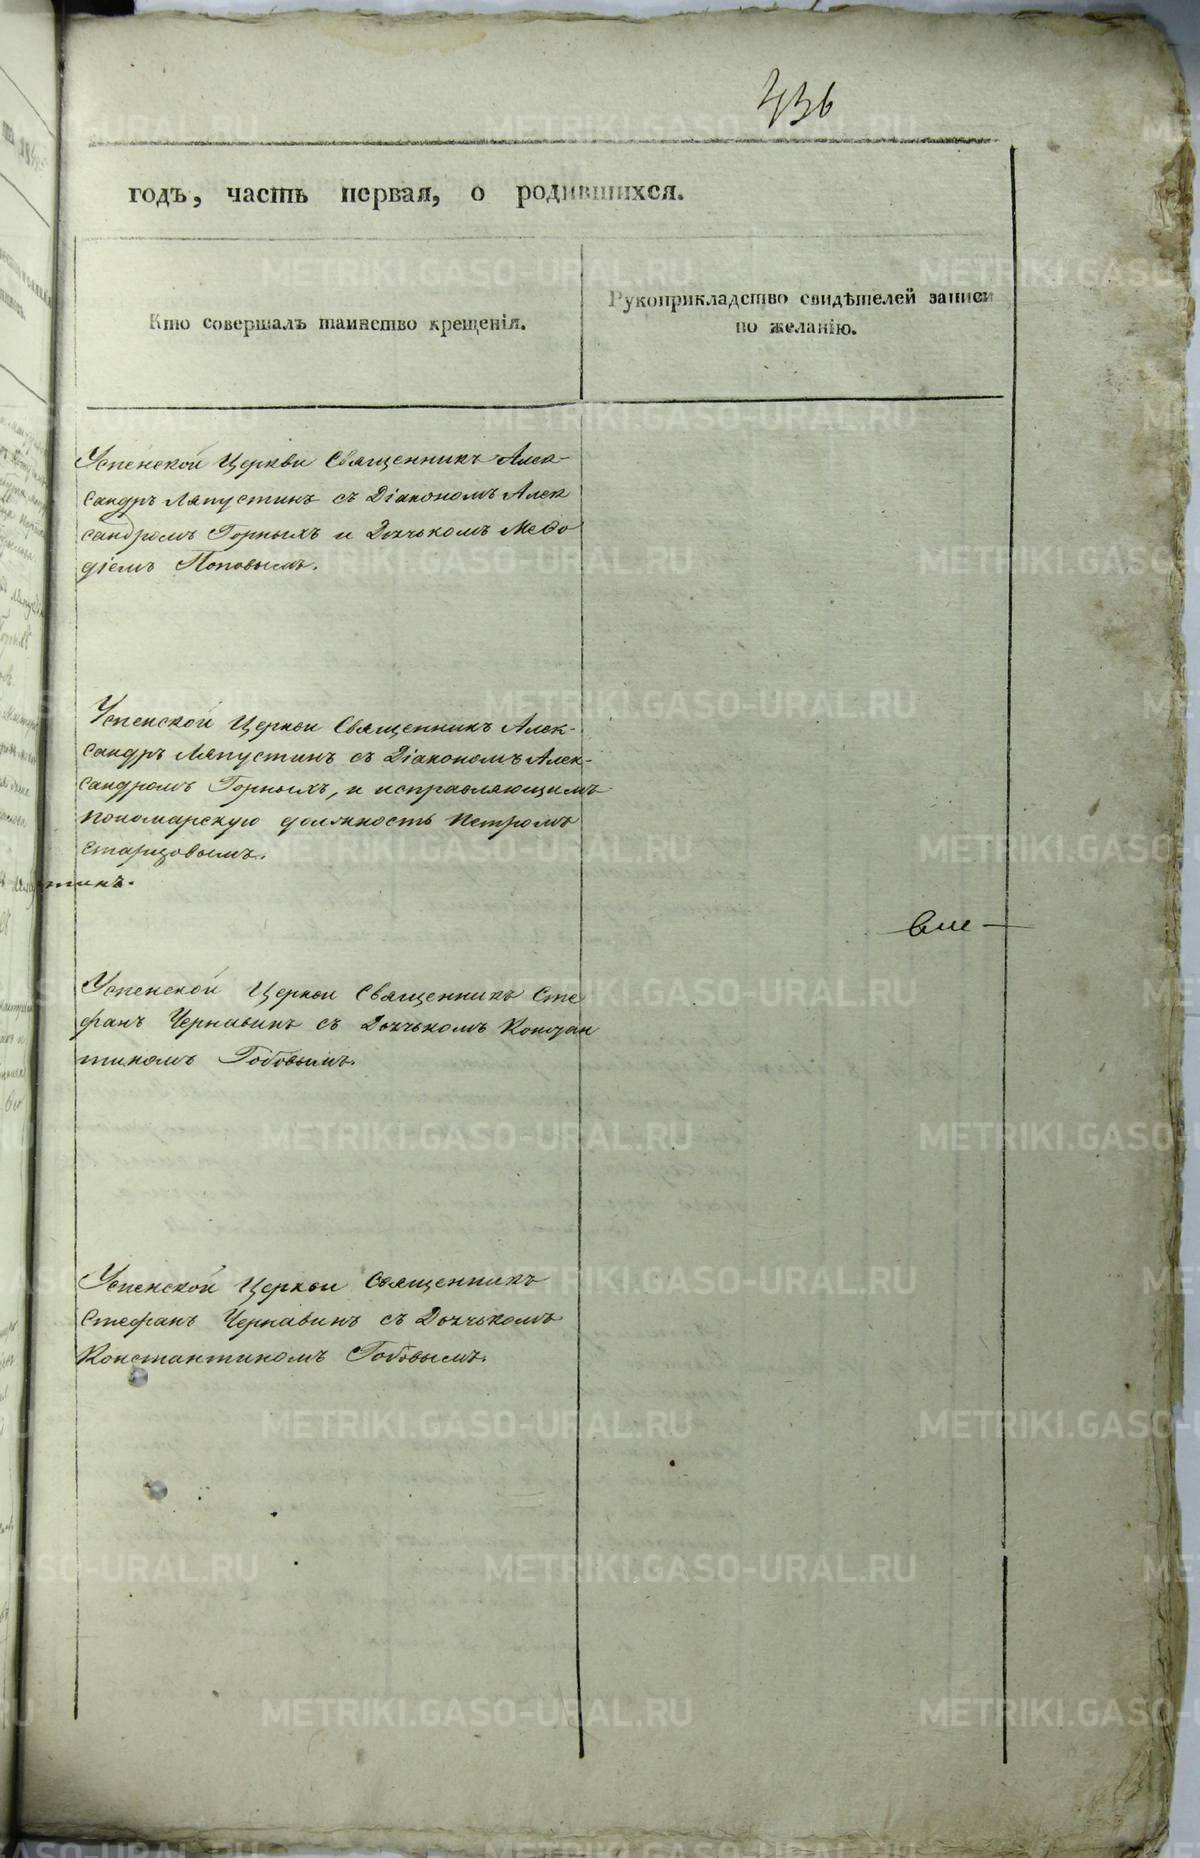 436
годъ, часть первая, о родившихся.
Кто совершалъ таинство крещенія.
Рукоприкладство свидѣтелей записи
по желанію.
Успенской Церкви Священникъ Алек-
сандръ Ляпустинъ съ Діакономъ Алек
сандромъ Горныхъ и Дьячькомъ Меѳо
діемъ Поповымъ.
Успенской Церкви Священникъ Алек-
сандръ Ляпустинъ съ Діакономъ Алек-
сандромъ Горныхъ, и исправляющимъ
пономарскую должность Петромъ
Старцовымъ.
тинъ.
Успенской Церкви Священникъ Сте
фанъ Чернавинъ съ Дьячькомъ Констан
тиномъ Гобовымъ.
Успенской Церкви Священникъ
Стефанъ Чернавинъ съ Дьячькомъ
Константиномъ Гобовымъ.
METRIKI.GASO-URAL.RU